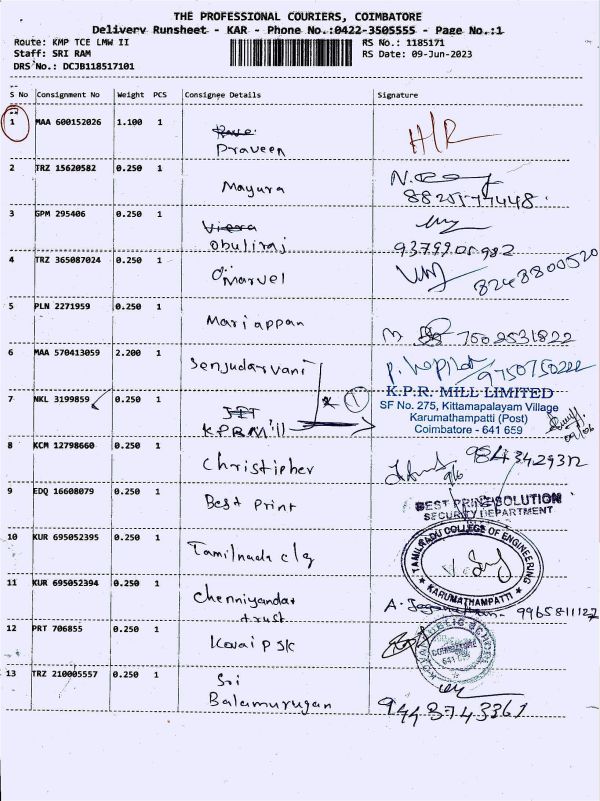 THE PROFESSIONAL COURIERS, COIMBATORE
Delivery Runsheet - KAR - Phone No.:0422-3505555 - Page No.:1
Route: KMP TCE LMW II RS No.: 1185171
Staff: SRI RAM RS Date: 09-Jun-2023
DRS No.: DCJB118517101
S No Consignment No Weight PCS Consignee Details Signature
1 MAA 600152026 1.100 1
Praveen H/R
2 TRZ 15620582 0.250 1
Mayura
3 GPM 295406 0.250 1
Obuliraj
4 TRZ 365087024 0.250 1
Marvel 8248800520
5 PLN 2271959 0.250 1
Mariappan 7502531822
6 MAA 570413059 2.200 1
Senjudarvani 9750750222
K.P.R. MILL LIMITED
7 NKL 3199859 0.250 1
SF No. 275, Kittamapalayam Village
Karumathampatti (Post)
KPR Mill 1
Coimbatore - 641 659
09/06
8 KCM 12798660 0.250 1
Christipher 9/6
9 EDQ 16608079 0.250 1
Best Print
BEST PRINT SOLUTION
SECURITY DEPARTMENT
10 KUR 695052395 0.250 1
Tamilnadu clg
TAMILNADU COLLEGE OF ENGINEERING
KARUMATHAMPATTI
11 KUR 695052394 0.250 1
Chenniyandar
trust
12 PRT 706855 0.250 1
Kovai PSK
KOVAI PUBLIC SCHOOL
COIMBATORE
13 TRZ 210005557 0.250 1
Sri
Balamurugan 9443743361